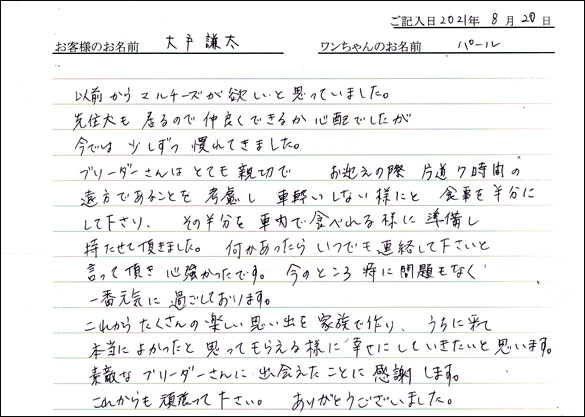 ご記入日 2021年 8月 20日
お客様のお名前 大戸謙太 ワンちゃんのお名前 パール
以前からマルチーズが欲しいと思っていました。
先住犬も居るので仲良くできるか心配でしたが
今では少しずつ慣れてきました。
ブリーダーさんはとても親切で お迎えの際 片道7時間の
遠方であることを考慮し 車酔いしない様にと 食事を半分に
して下さり、 その半分を車内で食べれる様に準備し
持たせて頂きました。 何かあったらいつでも連絡して下さいと
言って頂き心強かったです。 今のところ特に問題もなく
一番元気に過ごしております。
これからたくさんの楽しい思い出を家族で作り、うちに来て
本当によかったと思ってもらえる様に幸せにしていきたいと思います。
素敵なブリーダーさんに出会えたことに感謝します。
これからも頑張って下さい。 ありがとうございました。